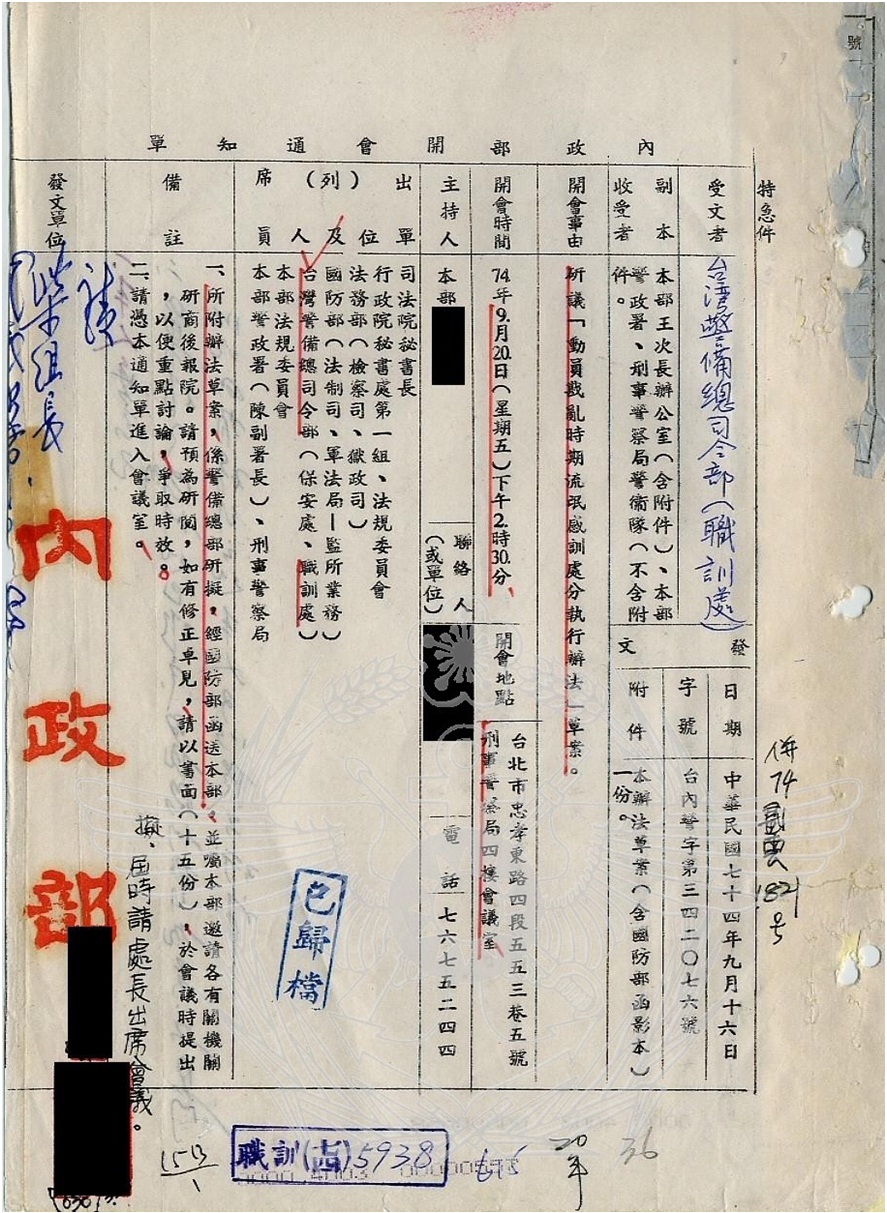 內政部開會通知單
特急件
受文者
台灣警備總司令部(職訓處)
副本收受者
本部王次長辦公室(含附件)、本部
警政署、刑事警察局警衛隊(不含附
件。
發文
日期
中華民國七十四年九月十六日
字號
台內警字第三四二〇七六號
附件
本辦法草案(含國防部函影本)
一份。
開會事由
研議「動員戡亂時期流氓感訓處分執行辦法」草案。
開會時間
74年9.月20.日(星期五)下午2.時30.分
開會地點
台北市忠孝東路四段五五三巷五號
刑事警察局四樓會議室
主持人
本部
聯絡人
(或單位)
電話
七六七五二四四
出(列)席
單位及人員
司法院秘書長
行政院秘書處第一組、法規委員會
法務部(檢察司、獄政司)
國防部(法制司、軍法局—監所業務)
台灣警備總司令部(保安處、職訓處)
本部法規委員會
本部警政署(陳副署長)、刑事警察局
備註
一、所附辦法草案,係警備總部研擬,經國防部函送本部,並囑本部邀請各有關機關
研商後報院。請預為研閱,如有修正卓見,請以書面(十五份),於會議時提出
,以便重點討論,爭取時效。
二、請憑本通知單進入會議室。
發文單位
內政部
擬、屆時請處長出席會議。
已歸檔
職訓(吉)5938
20年
36
號